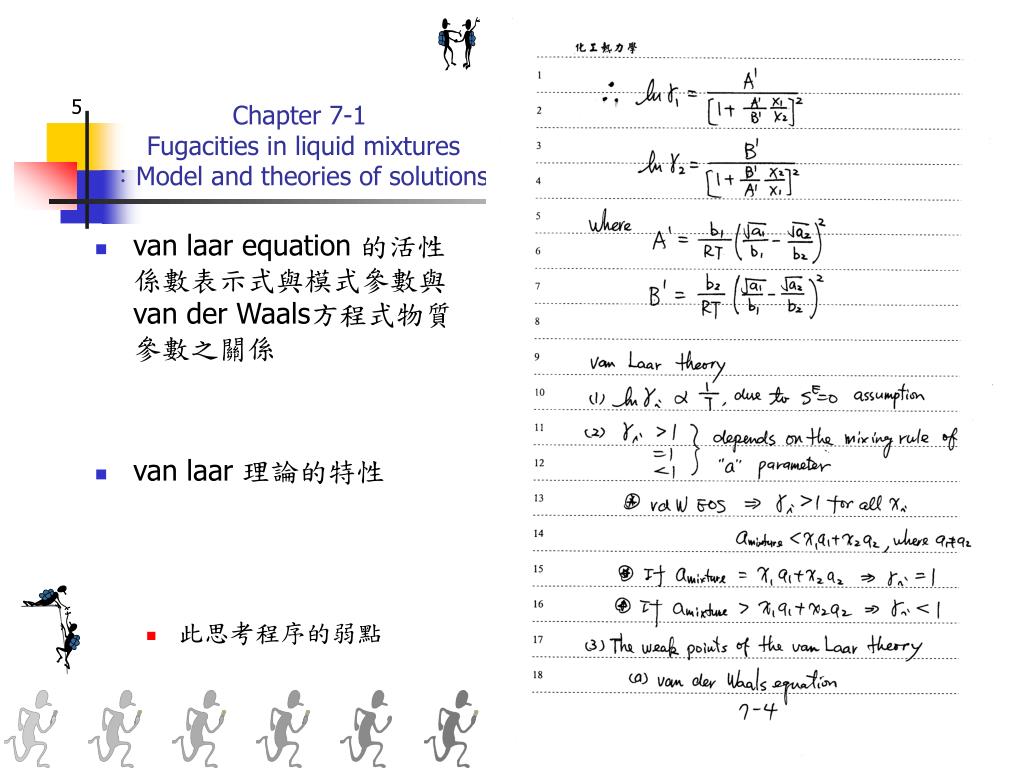 5
Chapter 7-1
Fugacities in liquid mixtures
: Model and theories of solutions
van laar equation 的活性
係數表示式與模式參數與
van der Waals方程式物質
參數之關係
van laar 理論的特性
此思考程序的弱點
化工熱力學
1
2
∴ ln γ₁ = A' / [1 + (A'/B') (x₁/x₂)]²
3
4
ln γ₂ = B' / [1 + (B'/A') (x₂/x₁)]²
5
6
where A' = b₁/RT (√a₁/b₁ - √a₂/b₂)²
7
B' = b₂/RT (√a₁/b₁ - √a₂/b₂)²
8
9 van Laar theory
10 (1) ln γᵢ ∝ 1/T, due to Sᴱ=0 assumption
11 (2) γᵢ >1 } depends on the mixing rule of
=1
12 <1 "a" parameter
13 ⊛ vdW EOS ⇒ γᵢ >1 for all xᵢ
14 amixture < x₁a₁+x₂a₂, where a₁≠a₂
15 ⊛ If amixture = x₁a₁+x₂a₂ ⇒ γᵢ = 1
16 ⊛ If amixture > x₁a₁+x₂a₂ ⇒ γᵢ < 1
17 (3) The weak points of the van Laar theory
18 (a) van der Waals equation
7-4